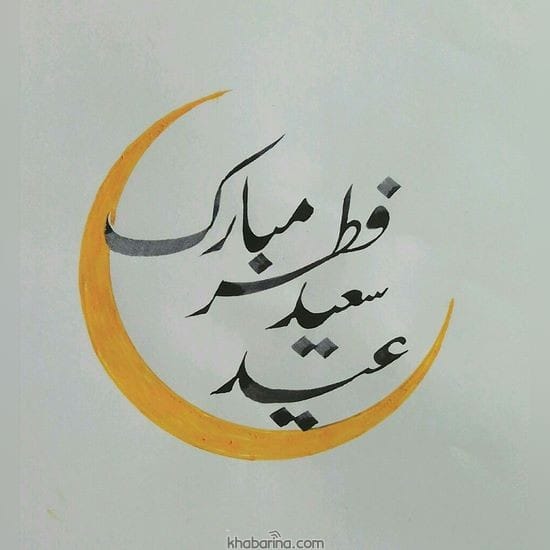 عید
سعید
فطر
مبارک
khabarina.com